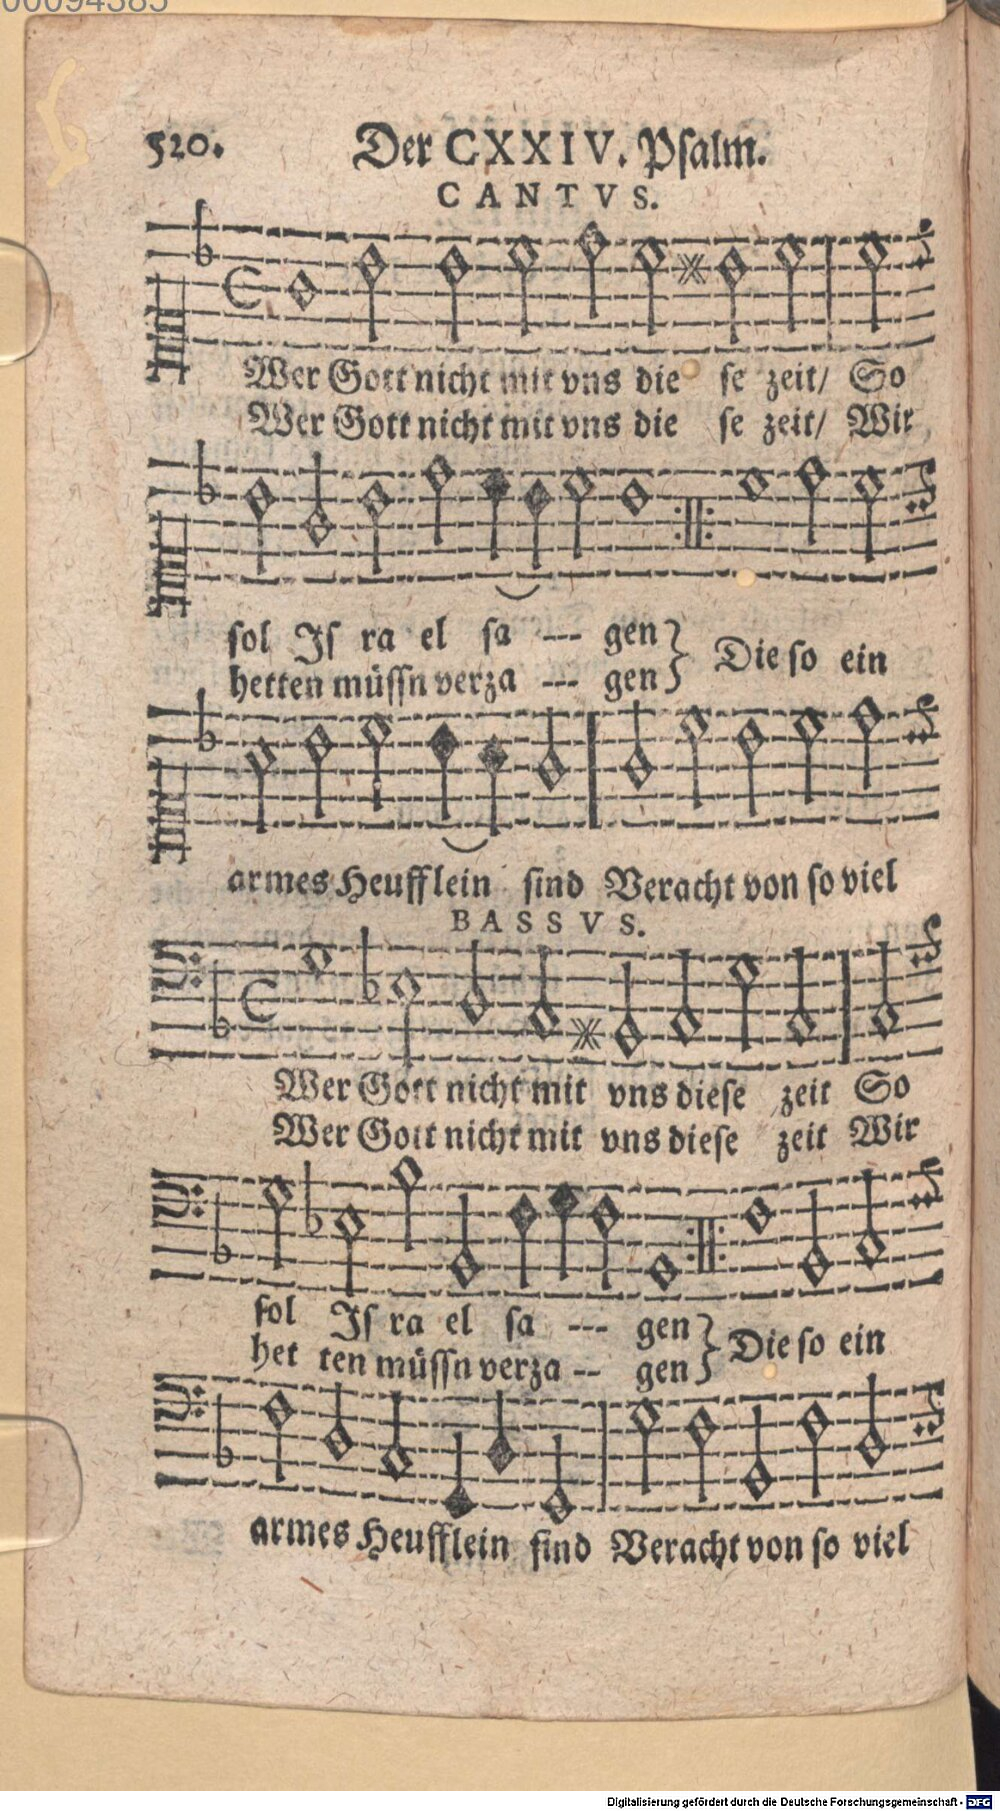 00094385
520. Der CXXIV. Psalm.
CANTVS.
Wer Gott nicht mit vns die se zeit/ So
Wer Gott nicht mit vns die se zeit/ Wir
sol Jſ ra el ſa --- gen } Die ſo ein
hetten müſſn verza --- gen }
armes Heufflein ſind Veracht von ſo viel
BASSVS.
Wer Gott nicht mit vns dieſe zeit So
Wer Gott nicht mit vns dieſe zeit Wir
ſol Jſ ra el ſa --- gen } Die ſo ein
het ten müſſn verza -- gen }
armes Heufflein ſind Veracht von ſo viel
Digitalisierung gefördert durch die Deutsche Forschungsgemeinschaft - DFG